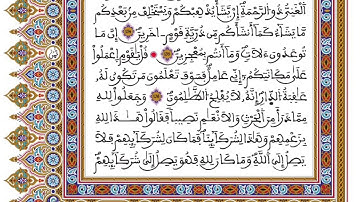 ٱلْغَنِىُّ ذُو ٱلرَّحْمَةِ إِن يَشَأْ يُذْهِبْكُمْ وَيَسْتَخْلِفْ مِنۢ بَعْدِكُم
مَّا يَشَآءُ كَمَآ أَنشَأَكُم مِّن ذُرِّيَّةِ قَوْمٍ ءَاخَرِينَ إِنَّ مَا
تُوعَدُونَ لَءَاتٍ وَمَآ أَنتُم بِمُعْجِزِينَ قُلْ يَٰقَوْمِ ٱعْمَلُوا۟
عَلَىٰ مَكَانَتِكُمْ إِنِّى عَامِلٌ فَسَوْفَ تَعْلَمُونَ مَن تَكُونُ لَهُۥ
عَٰقِبَةُ ٱلدَّارِ إِنَّهُۥ لَا يُفْلِحُ ٱلظَّٰلِمُونَ وَجَعَلُوا۟ لِلَّهِ
مِمَّا ذَرَأَ مِنَ ٱلْحَرْثِ وَٱلْأَنْعَٰمِ نَصِيبًا فَقَالُوا۟ هَٰذَا لِلَّهِ
بِزَعْمِهِمْ وَهَٰذَا لِشُرَكَآئِنَا فَمَا كَانَ لِشُرَكَآئِهِمْ فَلَا
يَصِلُ إِلَى ٱللَّهِ وَمَا كَانَ لِلَّهِ فَهُوَ يَصِلُ إِلَىٰ شُرَكَآئِهِمْ